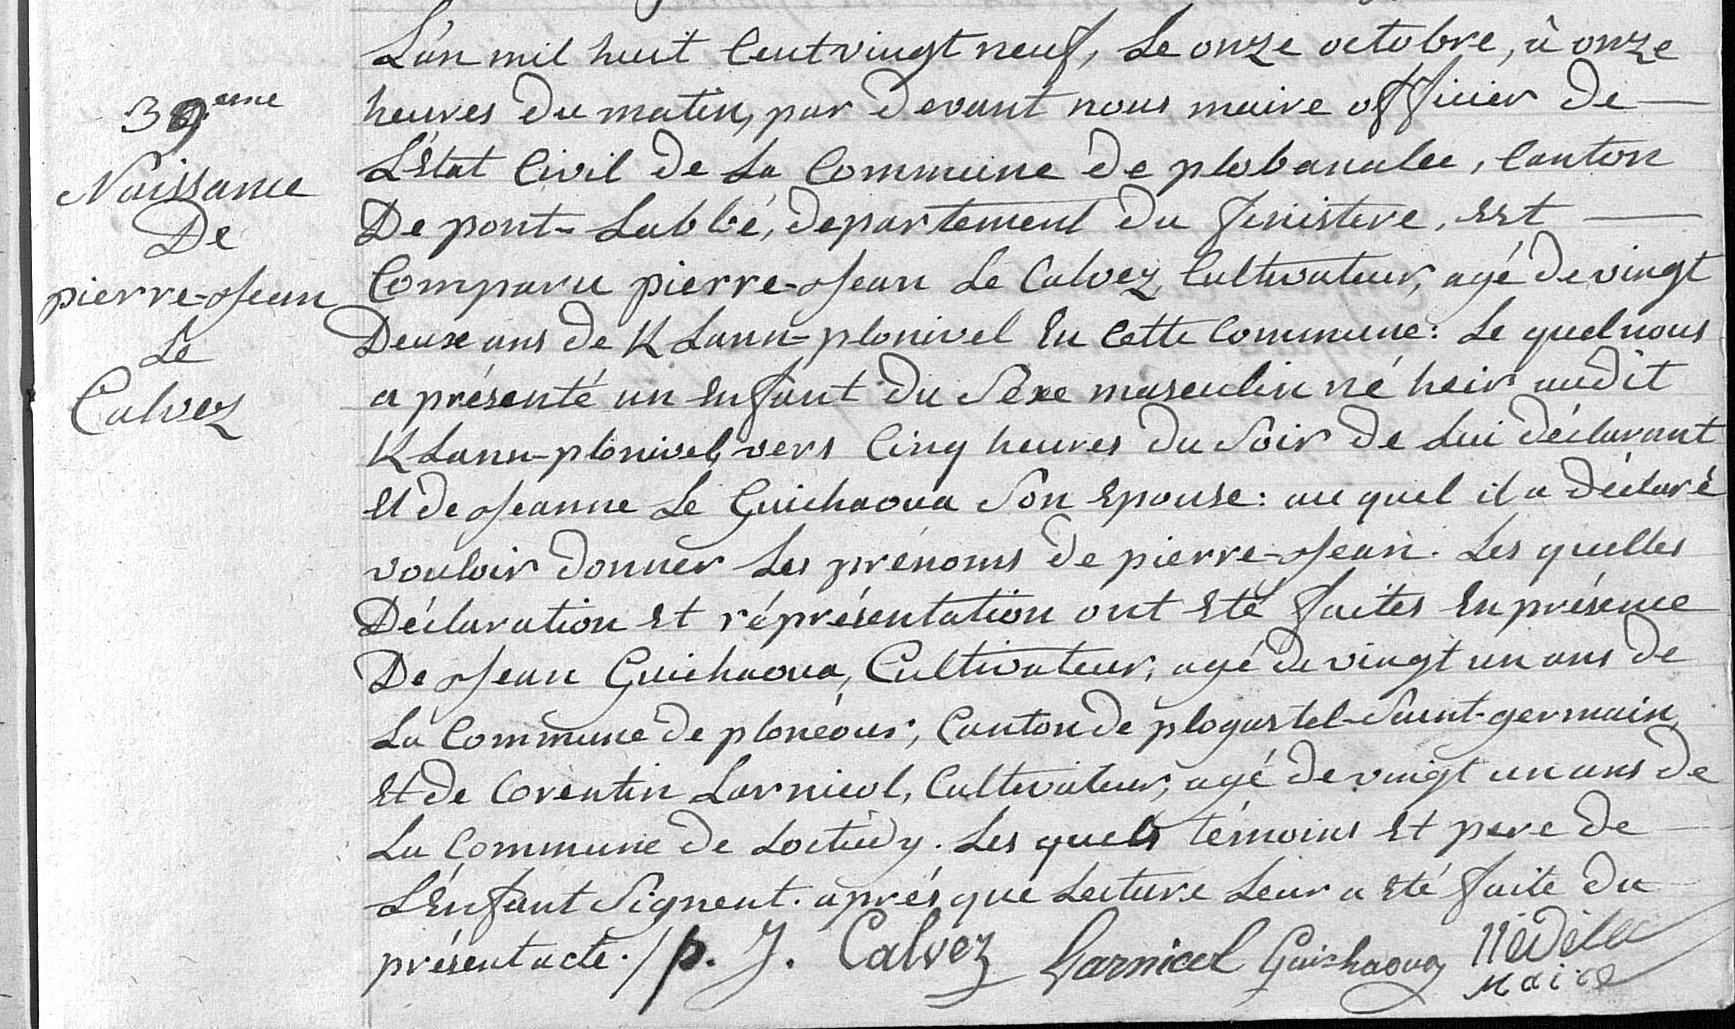 39eme
Naissance
De
pierre-Jean
Le
Calvez
L'an mil huit Cent vingt neuf, Le onze octobre, à onze
heures du matin, par devant nous maire officier de
L'Etat Civil de La Commune de plobanalec, Canton
De pont-Labbé, departement du finistere, Est
Comparu pierre-Jean Le Calvez, Cultivateur, agé de vingt
Deux ans de K Lann-plonivel En Cette Commune: Le quel nous
a présenté un Enfant du Sexe masculin né heir audit
K Lann-plonivel, vers Cinq heures du Soir de Lui déclarant
Et de Jeanne Le Guichaoua Son Epouse: au quel il a déclaré
vouloir donner Les prénoms de pierre-Jean. Les quelles
Déclaration Et réprésentation ont Eté faites En présence
De Jean Guichaoua, Cultivateur, agé de vingt un ans de
La Commune de plonéour, Canton de plogastel-Saint-germain
Et de Corentin Larnicol, Cultivateur, agé de vingt un ans de
La Commune de Loctudy. Les quels témoins Et pere de
L'Enfant Signent. aprés que Lecture Leur a Eté faite du
présent acte. / p. J. Calvez Larnicol Guichaoua
Maire